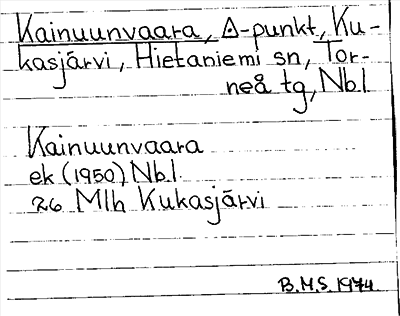 Kainuunvaara, Δ-punkt, Ku-
kasjärvi, Hietaniemi sn, Tor-
neå tg, Nbl.
Kainuunvaara
ek (1950) Nbl
26 Mlh Kukasjärvi
B.M.S. 1974